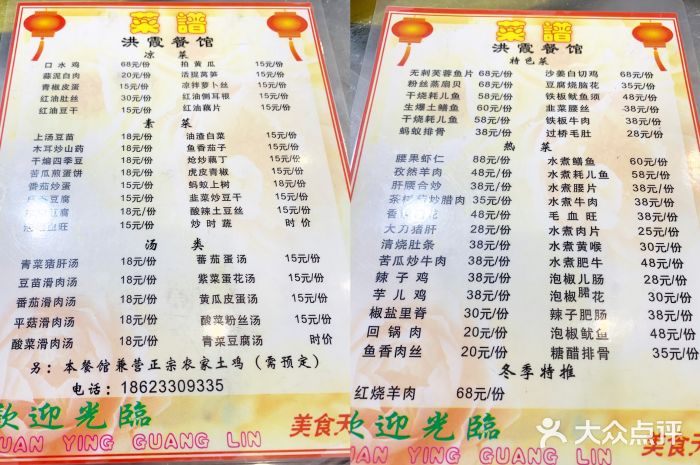 菜譜
洪霞餐馆
凉 菜
口水鸡 68元/份 拍黄瓜 15元/份
蒜泥白肉 20元/份 活捉莴笋 15元/份
青椒皮蛋 15元/份 凉拌萝卜丝 15元/份
红油肚丝 30元/份 红油侧耳根 15元/份
红油豆干 15元/份 红油藕片 15元/份
素 菜
上汤豆苗 18元/份 油渣白菜 15元/份
木耳炒山药 18元/份 鱼香茄子 15元/份
干煸四季豆 18元/份 炝炒藕丁 15元/份
苦瓜煎蛋饼 18元/份 虎皮青椒 15元/份
番茄炒蛋 18元/份 蚂蚁上树 18元/份
豆腐 18元/份 韭菜炒豆干 15元/份
豆腐 18元/份 酸辣土豆丝 15元/份
血旺 18元/份 炒时蔬 时价
汤 类
青菜猪肝汤 18元/份 番茄蛋汤 15元/份
豆苗滑肉汤 18元/份 紫菜蛋花汤 15元/份
番茄滑肉汤 18元/份 黄瓜皮蛋汤 15元/份
平菇滑肉汤 18元/份 酸菜粉丝汤 15元/份
酸菜滑肉汤 18元/份 青菜豆腐汤 时价
另：本餐馆兼营正宗农家土鸡（需预定）
电话：18623309335
欢迎光临
HUAN YING GUANG LIN
美食天
菜譜
洪霞餐馆
特色菜
无刺芙蓉鱼片 68元/份 沙姜白切鸡 68元/份
粉丝蒸扇贝 58元/份 豆腐烧脑花 35元/份
干烧耗儿鱼 58元/份 铁板鱿鱼须 48元/份
生爆土鳝鱼 60元/份 韭菜腰丝 38元/份
干烧耗儿鱼 58元/份 铁板牛肉 48元/份
蚂蚁排骨 38元/份 过桥毛肚 28元/份
热 菜
腰果虾仁 88元/份 水煮鳝鱼 60元/份
孜然羊肉 48元/份 水煮耗儿鱼 58元/份
肝腰合炒 38元/份 水煮腰片 38元/份
茶树菇炒腊肉 35元/份 水煮牛肉 38元/份
香 花 48元/份 毛血旺 38元/份
大刀猪肝 28元/份 水煮肉片 25元/份
清烧肚条 38元/份 水煮黄喉 30元/份
苦瓜炒牛肉 38元/份 水煮肥牛 48元/份
辣子鸡 38元/份 泡椒儿肠 28元/份
芋儿鸡 38元/份 泡椒腰花 30元/份
椒盐里脊 30元/份 辣子肥肠 38元/份
回锅肉 20元/份 泡椒鱿鱼 48元/份
鱼香肉丝 20元/份 糖醋排骨 35元/份
冬季特推
红烧羊肉 68元/份
欢迎光临
HUAN YING GUANG LIN
美食天
大众点评